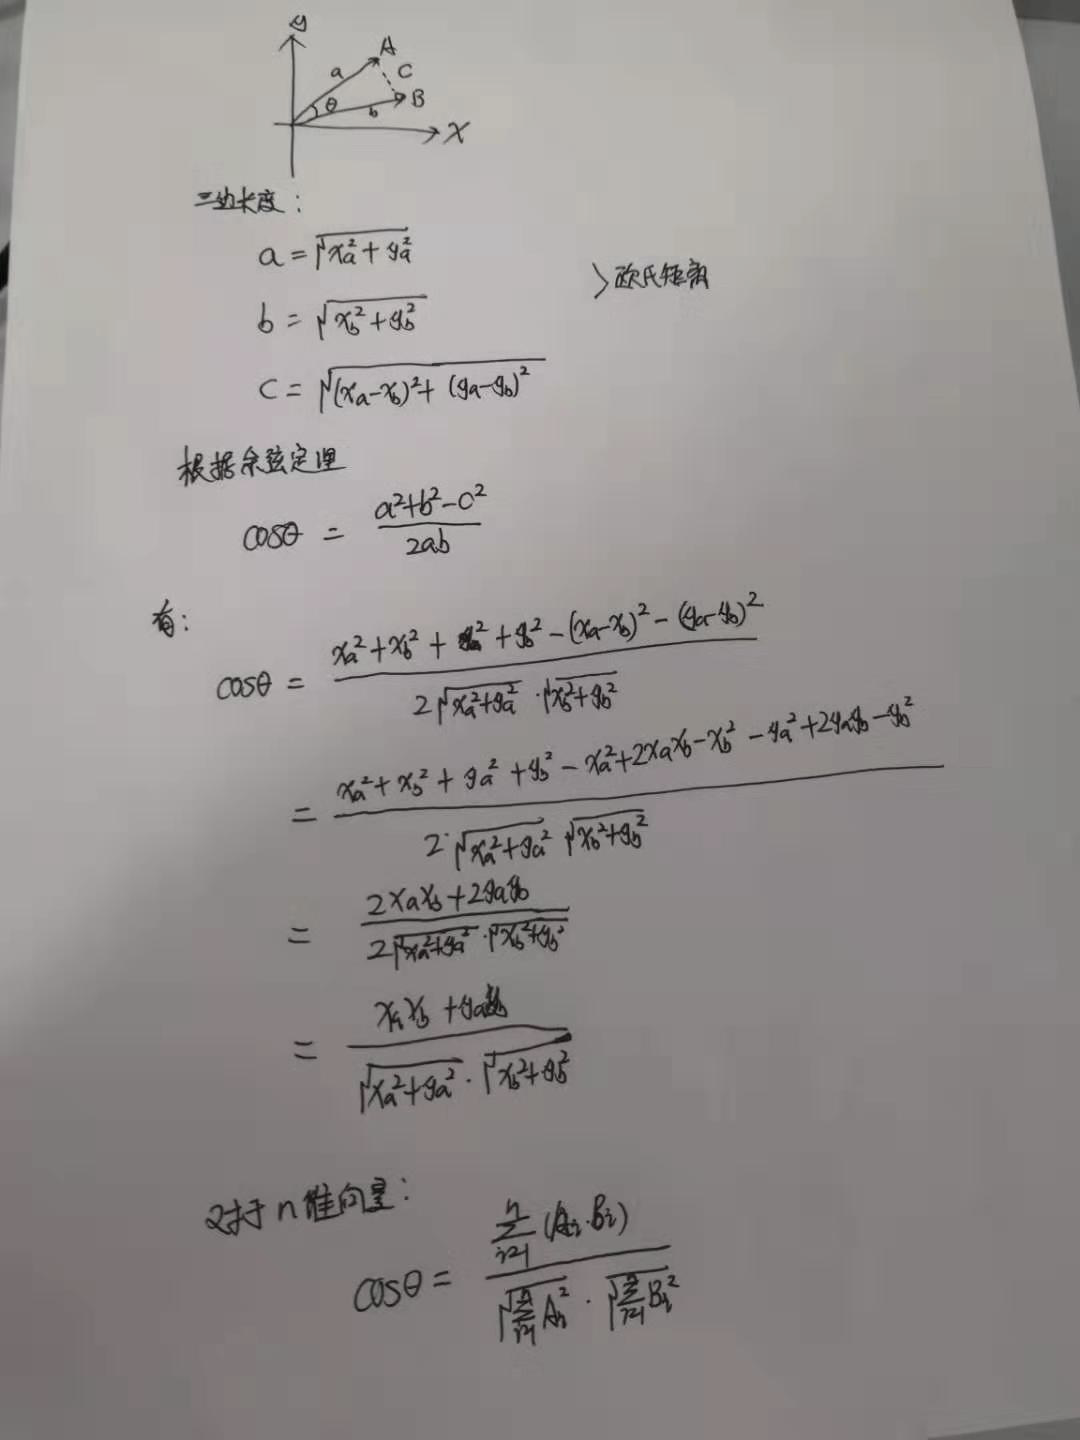 y
A
a
C
θ
B
b
X
三边长度：
a = √(x_a² + y_a²)
b = √(x_b² + y_b²)
> 欧氏距离
c = √((x_a - x_b)² + (y_a - y_b)²)
根据余弦定理
cosθ = (a² + b² - c²) / 2ab
有：
cosθ = (x_a² + x_b² + y_a² + y_b² - (x_a - x_b)² - (y_a - y_b)²) / (2√(x_a² + y_a²) · √(x_b² + y_b²))
= (x_a² + x_b² + y_a² + y_b² - x_a² + 2x_a x_b - x_b² - y_a² + 2y_a y_b - y_b²) / (2·√(x_a² + y_a²) √(x_b² + y_b²))
= (2x_a x_b + 2y_a y_b) / (2√(x_a² + y_a²) · √(x_b² + y_b²))
= (x_a x_b + y_a y_b) / (√(x_a² + y_a²) · √(x_b² + y_b²))
对于n维向量：
cosθ = Σ_{i=1}^{n} (A_i · B_i) / (√(Σ_{i=1}^{n} A_i²) · √(Σ_{i=1}^{n} B_i²))